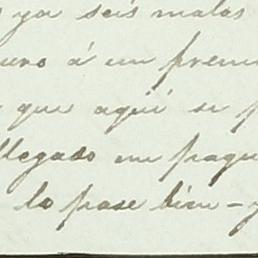 ya seis malos
uro á un premi
que aquí se p
llegado un paque
lo pase bien - y